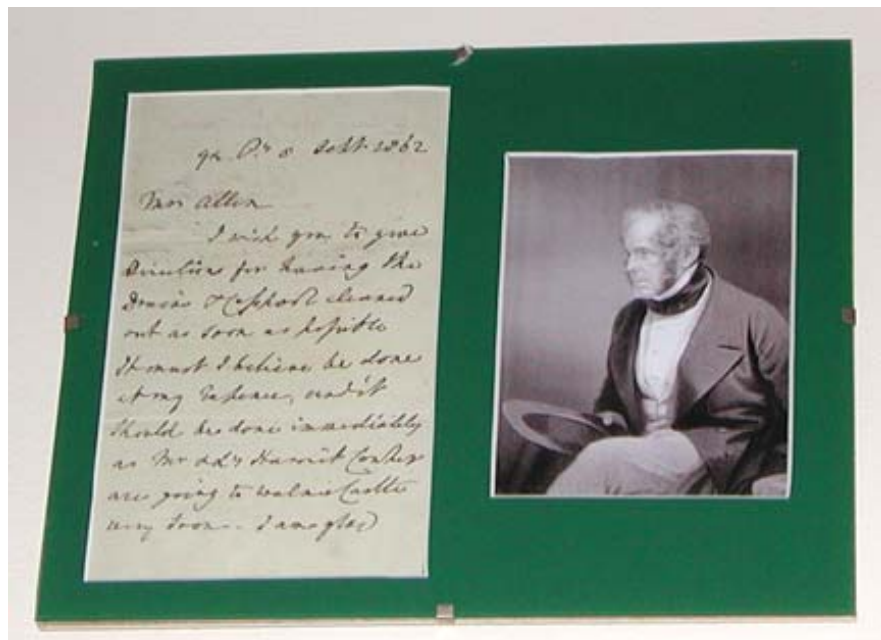 94 Py 8 Sept 1862
Mrs Allen
I wish you to give
Directions for having the
Drains & Cesspool cleaned
out as soon as possible
It must I believe be done
at my Expence, and it
should be done immediately
as Mr & Ly Harriet Cowper
are going to Walmer Castle
very soon - I am glad